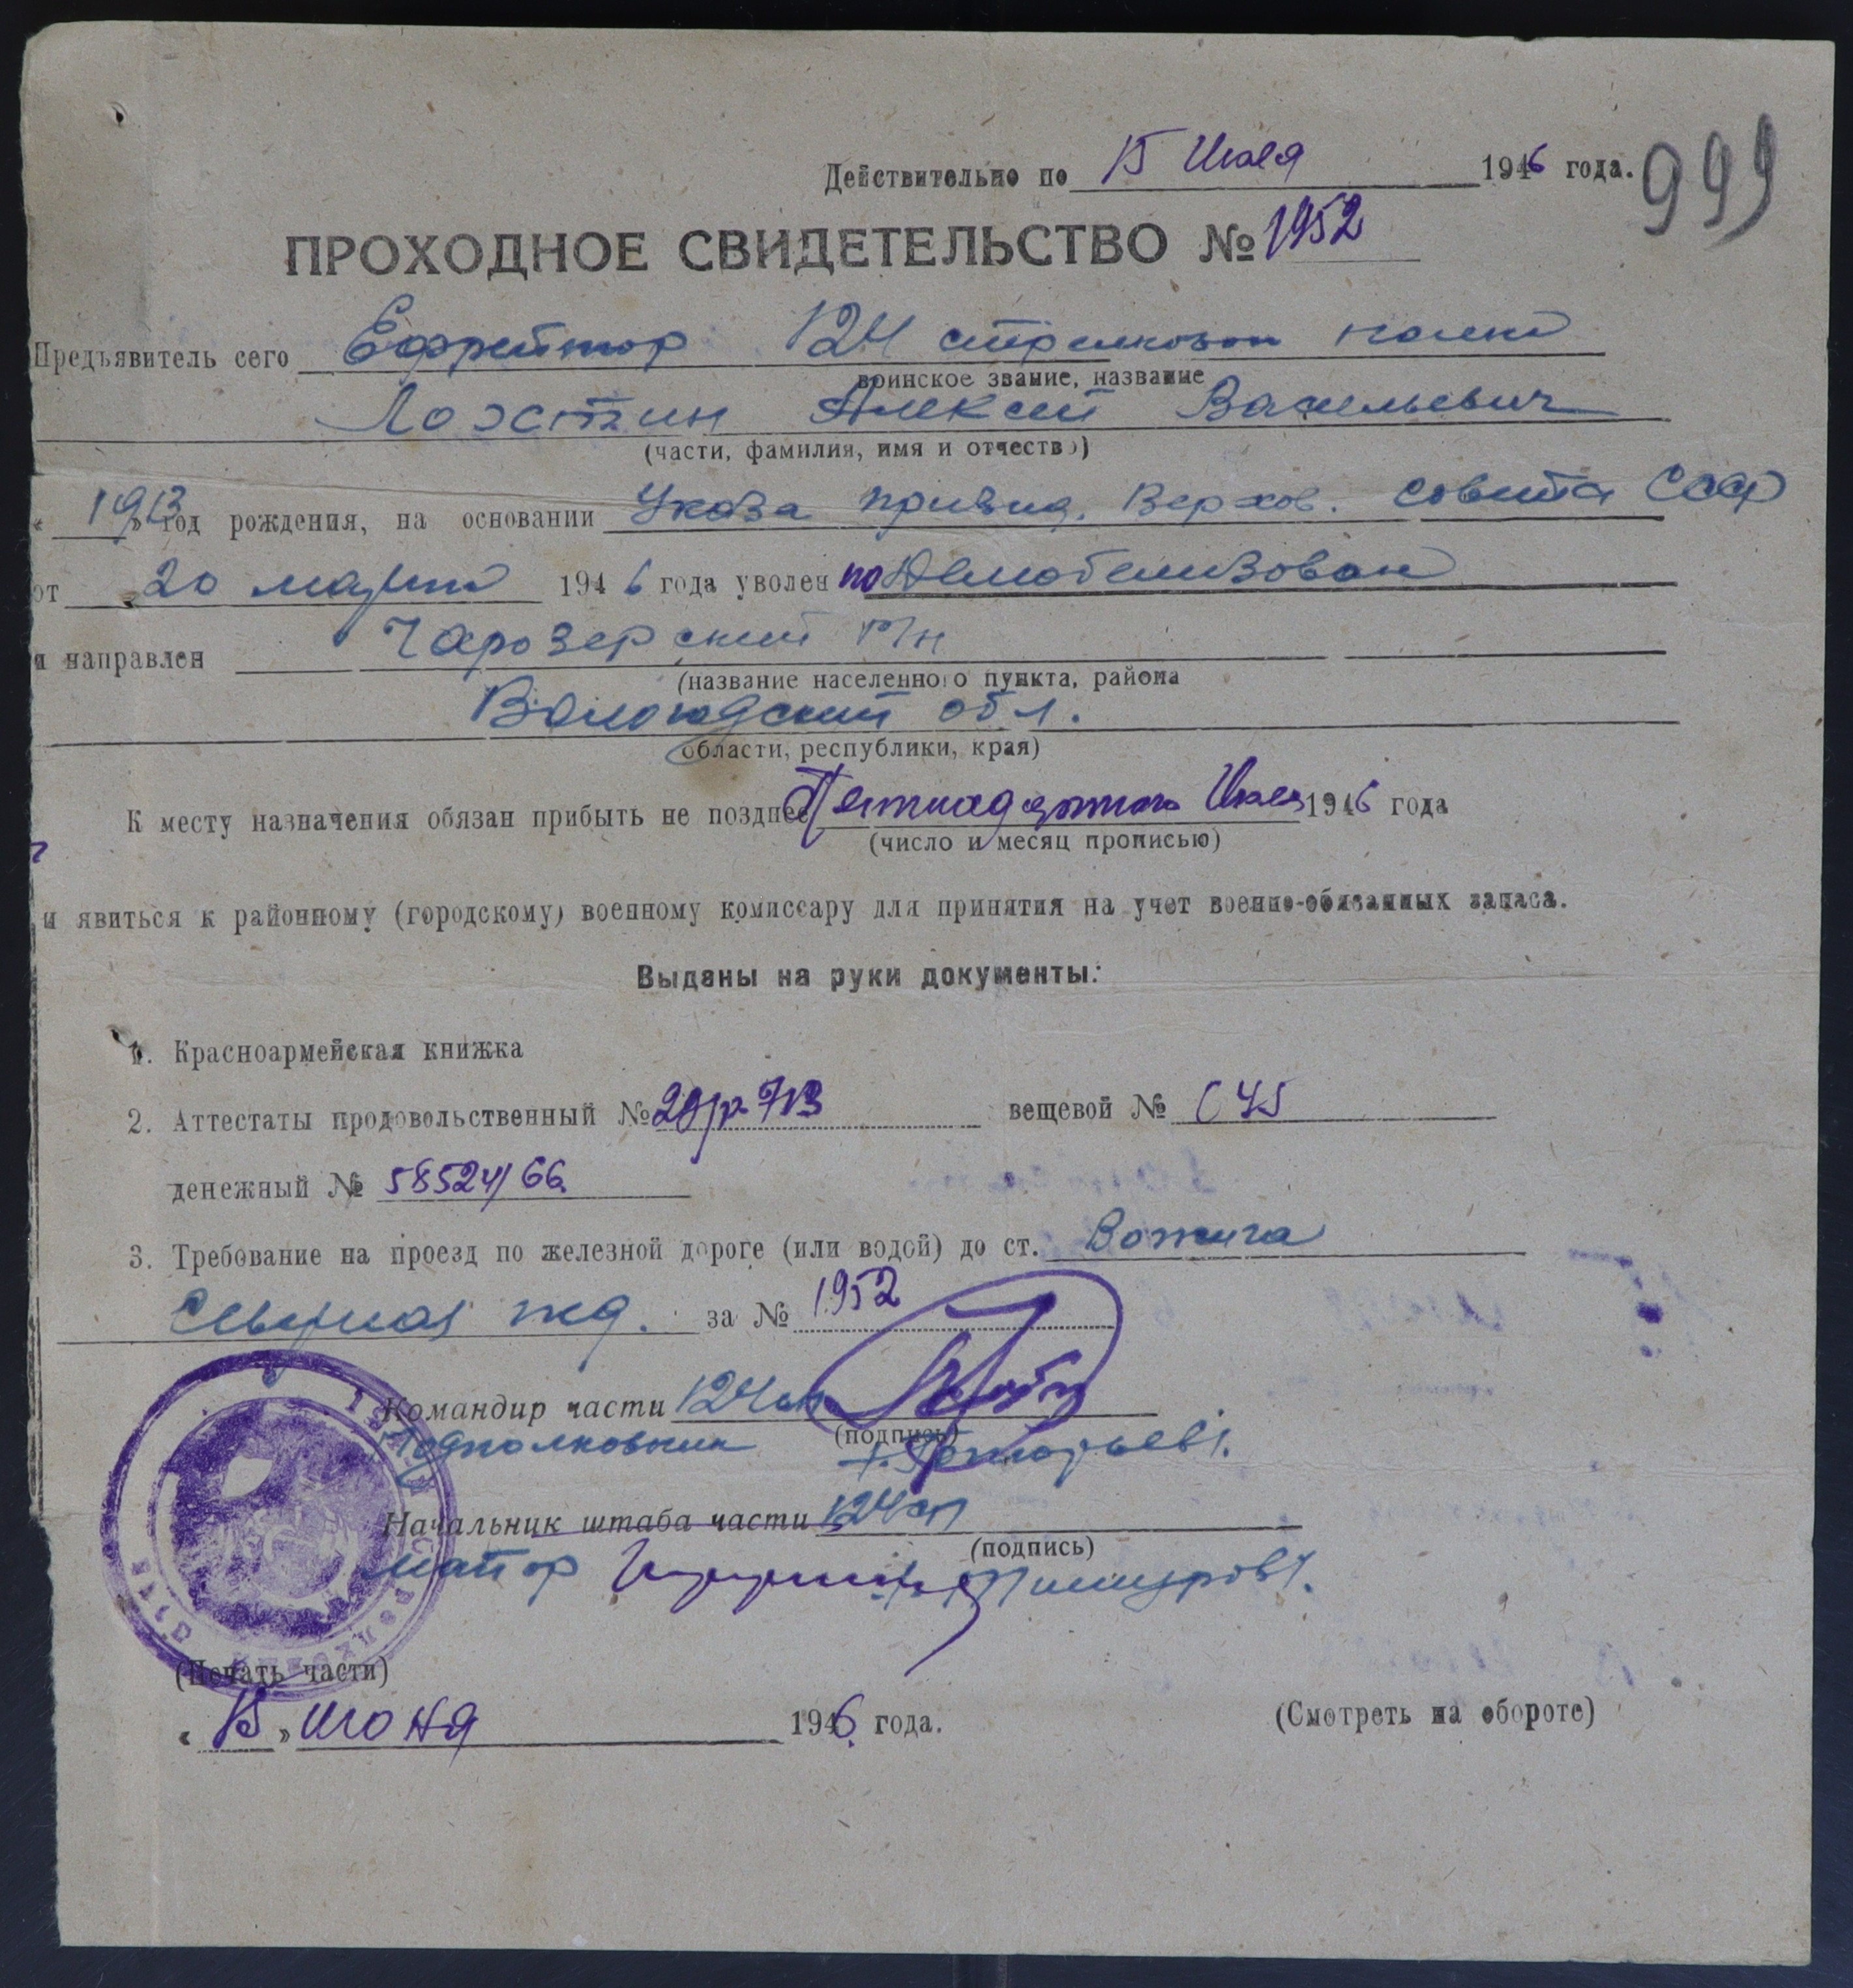 999
Действительно по 15 Июля 1946 года.
ПРОХОДНОЕ СВИДЕТЕЛЬСТВО № 1952
Предъявитель сего Ефрейтор 124 стрелковый полк
воинское звание, название
Алексей Васильевич
(части, фамилия, имя и отчество)
« 1913 » год рождения, на основании Указа през. Верхов. совета СССР
от 20 марта 1946 года уволен по демобелизован
и направлен Чарозерский р/н
(название населенного пункта, района
Вологодский обл.
области, республики, края)
К месту назначения обязан прибыть не позднее Пятнадцатого Июля 1946 года
(число и месяц прописью)
и явиться к районному (городскому) военному комиссару для принятия на учет военно-обязанных запаса.
Выданы на руки документы:
1. Красноармейская книжка
2. Аттестаты продовольственный № вещевой №
денежный № 58524/66
3. Требование на проезд по железной дороге (или водой) до ст. Вожега
Северная жд. за № 1952
Командир части 124 сп
(подпись)
Подполковник
Начальник штаба части 124 сп
(подпись)
майор
(Печать части)
« 15 » июня 1946 года.
(Смотреть на обороте)